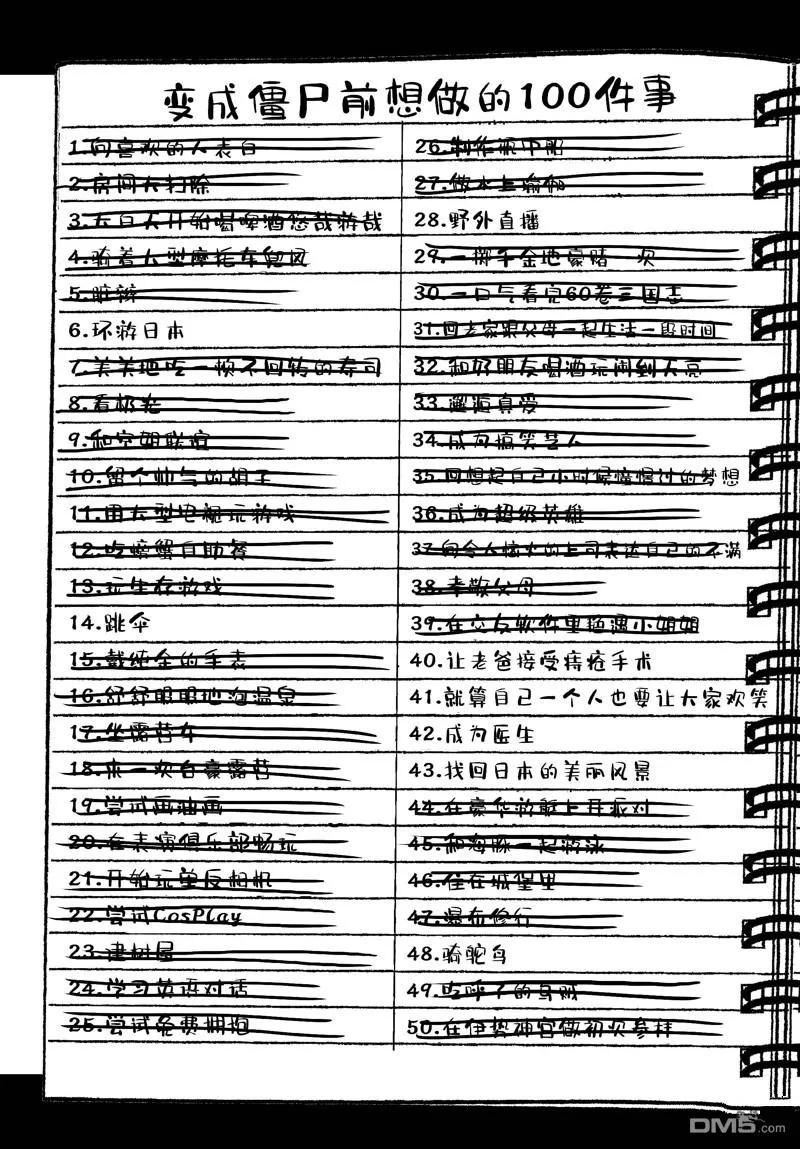 变成僵尸前想做的100件事
1.向喜欢的人表白
2.房间大扫除
3.大白天开始喝啤酒悠哉游哉
4.骑着大型摩托车兜风
5.脏辫
6.环游日本
7.美美地吃一顿不回转的寿司
8.看极光
9.和空姐联谊
10.留个帅气的胡子
11.用大型电视玩游戏
12.吃螃蟹自助餐
13.玩生存游戏
14.跳伞
15.戴纯金的手表
16.舒舒服服地泡温泉
17.坐露营车
18.来一次自豪露营
19.尝试画油画
20.在表演俱乐部畅玩
21.开始玩单反相机
22.尝试CosPlay
23.建树屋
24.学习英语对话
25.尝试免费拥抱
26.制作瓶中船
27.做水上瑜伽
28.野外直播
29.一掷千金地豪赌一次
30.一口气看完60卷三国志
31.回老家跟父母一起生活一段时间
32.和好朋友喝酒玩闹到天亮
33.邂逅真爱
34.成为搞笑艺人
35.回想起自己小时候憧憬过的梦想
36.成为超级英雄
37.向令人恼火的上司表达自己的不满
38.孝敬父母
39.在交友软件里艳遇小姐姐
40.让老爸接受痔疮手术
41.就算自己一个人也要让大家欢笑
42.成为医生
43.找回日本的美丽风景
44.在豪华游艇上开派对
45.和海豚一起游泳
46.住在城堡里
47.瀑布修行
48.骑鸵鸟
49.吃呼子的乌贼
50.在伊势神宫做初次参拜
DM5.com